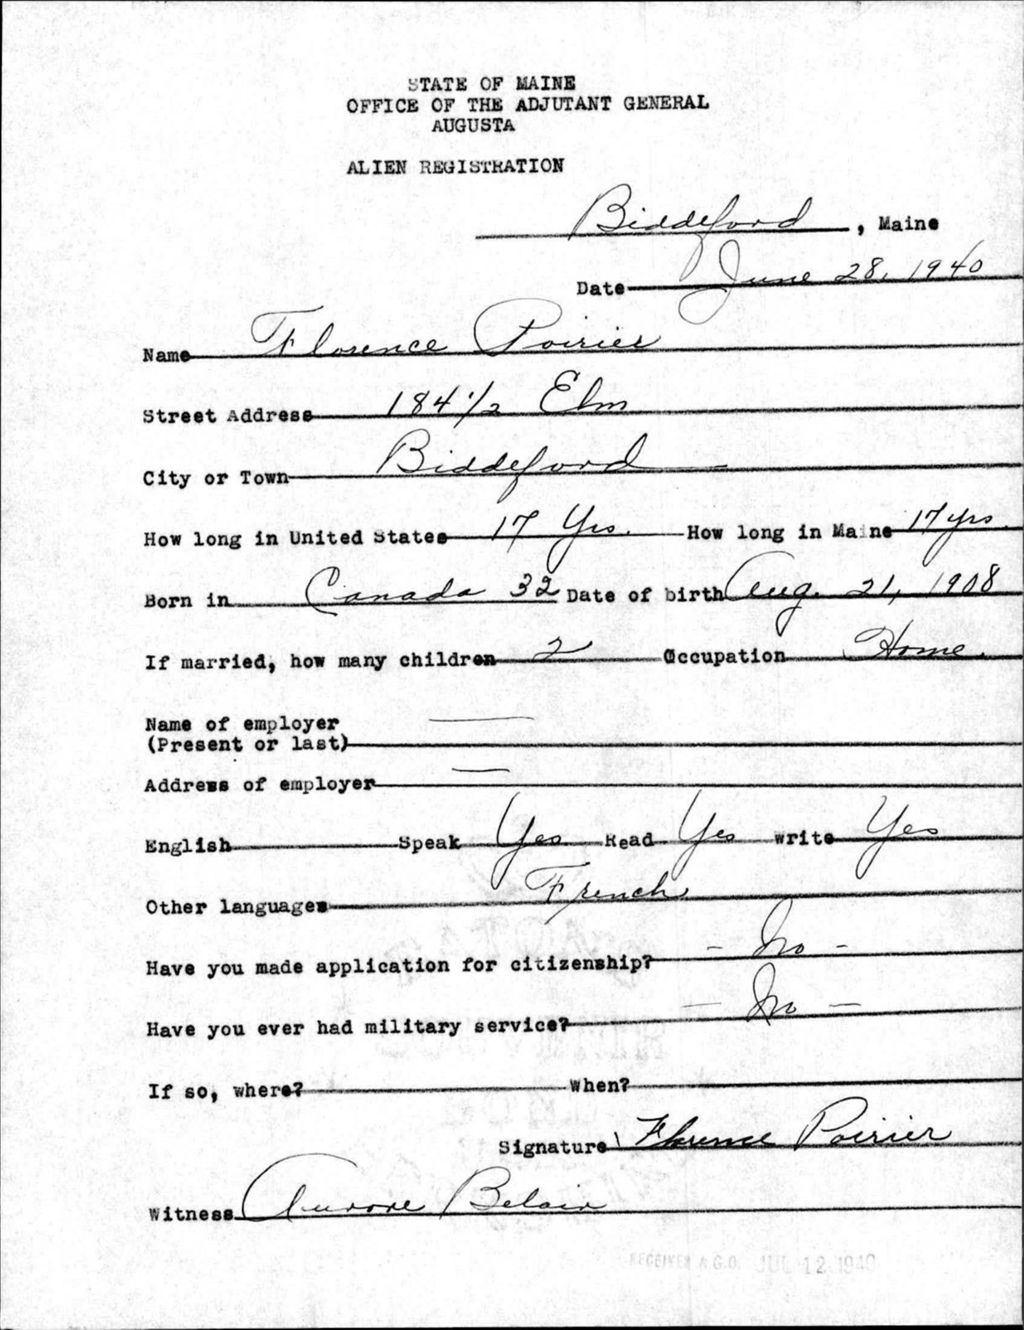 STATE OF MAINE
OFFICE OF THE ADJUTANT GENERAL
AUGUSTA
ALIEN REGISTRATION
Biddeford, Maine
Date June 28, 1940
Name Florence Poirier
Street Address 184 1/2 Elm
City or Town Biddeford
How long in United States 17 Yrs. How long in Maine 17 yrs.
Born in Canada 32 Date of birth Aug. 21, 1908
If married, how many children 2 Occupation Home
Name of employer
(Present or last)
Address of employer
English Speak Yes Read Yes Write Yes
Other languages French
Have you made application for citizenship? - No -
Have you ever had military service? - No -
If so, where? When?
Signature Florence Poirier
Witness Aurore Belair
RECEIVED A.G.O. JUL 12 1940